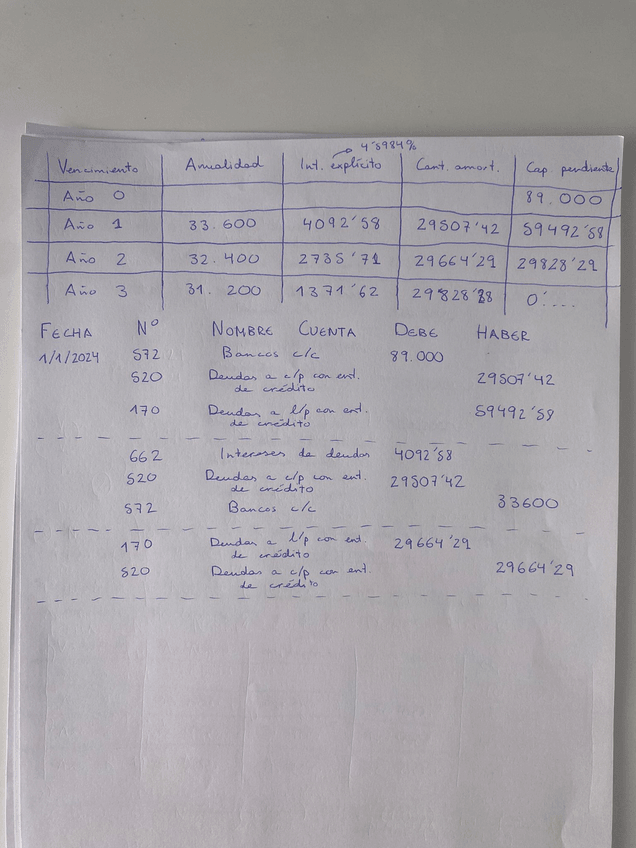 4'5984%
Vencimiento Anualidad Int. explícito Cant. amort. Cap. pendiente
Año 0 89.000
Año 1 33.600 4092'58 29507'42 59492'58
Año 2 32.400 2735'71 29664'29 29828'29
Año 3 31.200 1371'62 29828'28 0'...
FECHA Nº NOMBRE CUENTA DEBE HABER
1/1/2024 572 Bancos c/c 89.000
520 Deudas a c/p con ent. 29507'42
de crédito
170 Deudas a l/p con ent. 59492'58
de crédito
662 Intereses de deudas 4092'58
520 Deudas a c/p con ent. 29507'42
de crédito
572 Bancos c/c 33600
170 Deudas a l/p con ent. 29664'29
de crédito
520 Deudas a c/p con ent. 29664'29
de crédito